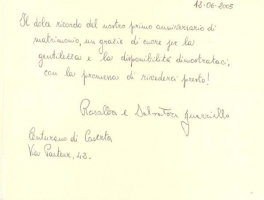 12-06-2005
Il dolce ricordo del nostro primo anniversario di
matrimonio, un grazie di cuore per la
gentilezza e la disponibilità dimostrataci
con la promessa di rivederci presto!
Rosalba e Salvatore
Centurano di Caserta
Via Pasteur, 42